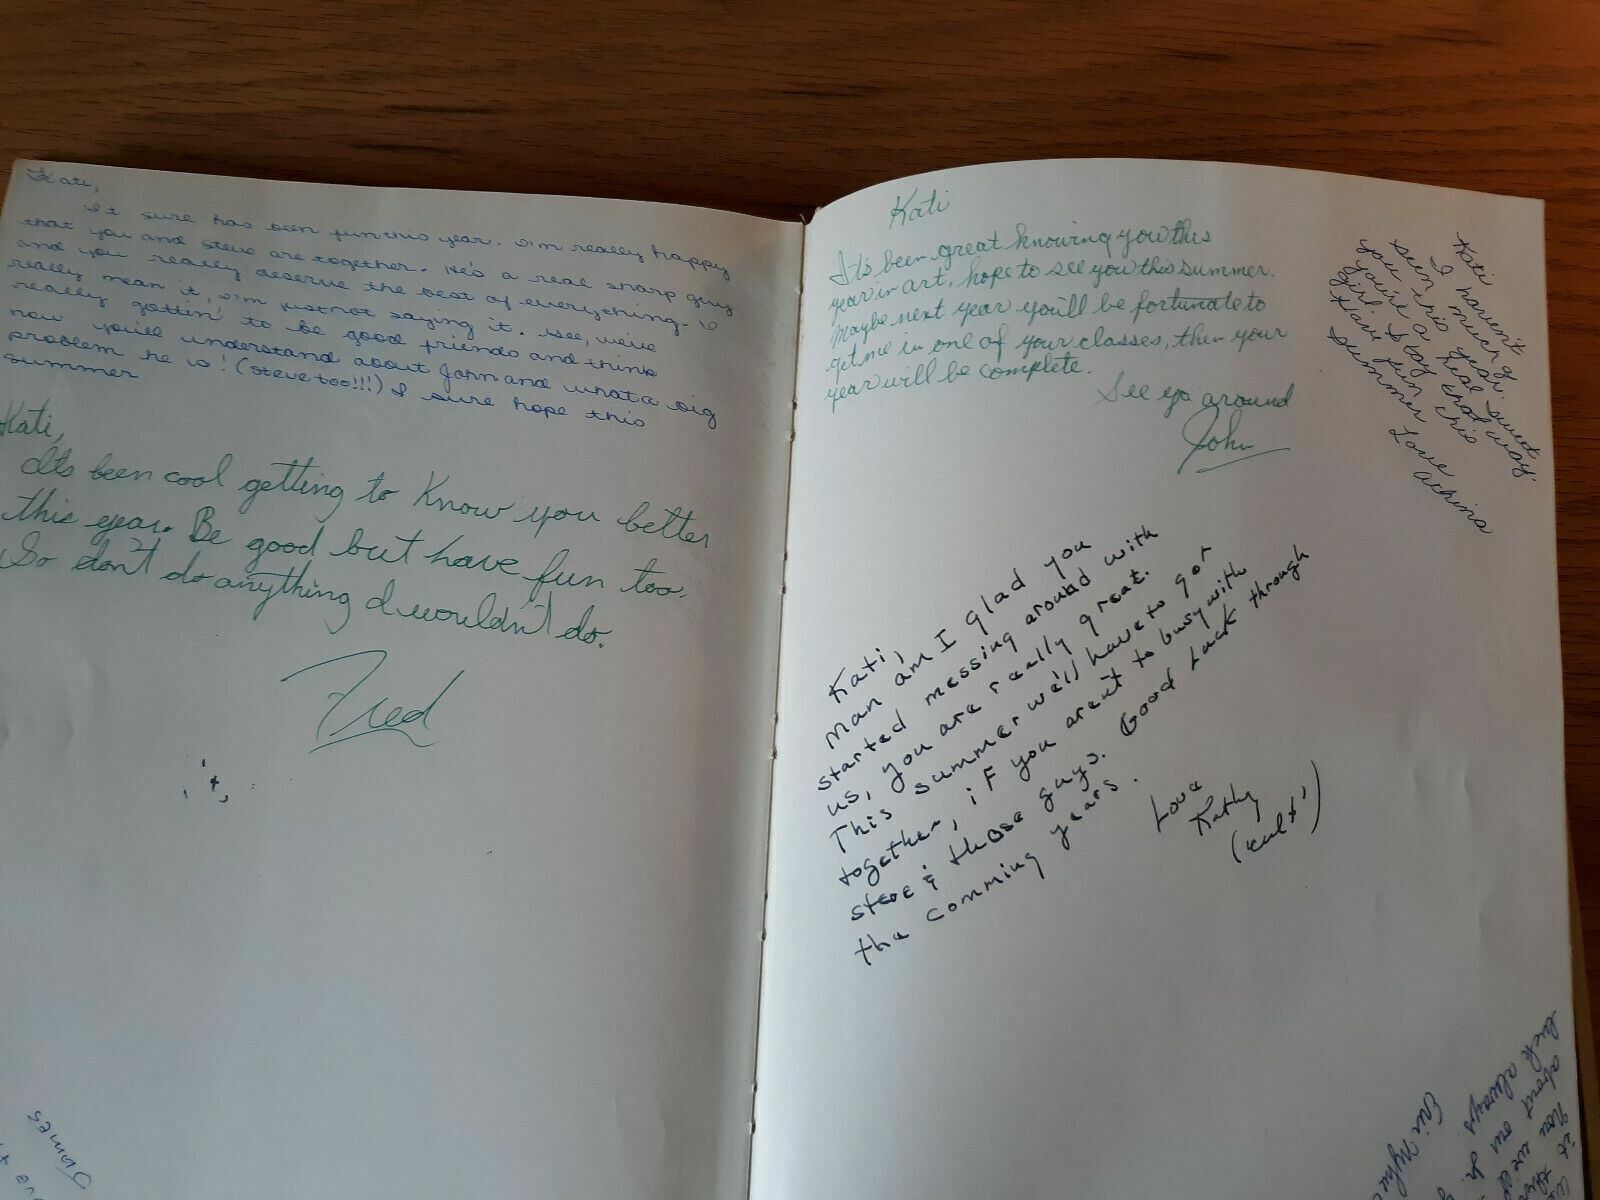 Kati,
It sure has been fun this year. I'm really happy
that you and Steve are together. He's a real sharp guy
and you really deserve the best of everything. I
really mean it, I'm just not saying it. See, we've
really gottin' to be good friends and think
now you'll understand about John and what a big
problem he is! (Steve too!!!) I sure hope this
summer
Kati,
Its been cool getting to know you better
this year. Be good but have fun too.
So don't do anything I wouldn't do.
Fred
James
Kati
It's been great knowing you this
year in art, hope to see you this summer.
Maybe next year you'll be fortunate to
get me in one of your classes, then your
year will be complete.
See ya around
John
Kati
I haven't
seen much of
you this year.
you're a real sweet
girl. Stay that way.
Have fun this
summer
Love
Kati,
Man am I glad you
started messing around with
us, you are really great.
This summer we'll have to get
together, if you arent to busy with
steve & those guys. Good Luck through
the comming years.
Love
Kathy
luck always
Eric
about our